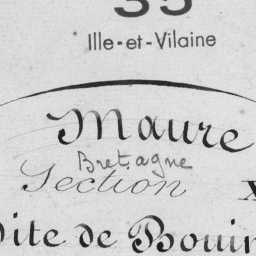 35
Ille-et-Vilaine
Maure
Bretagne
Section X
Dite de Bouin